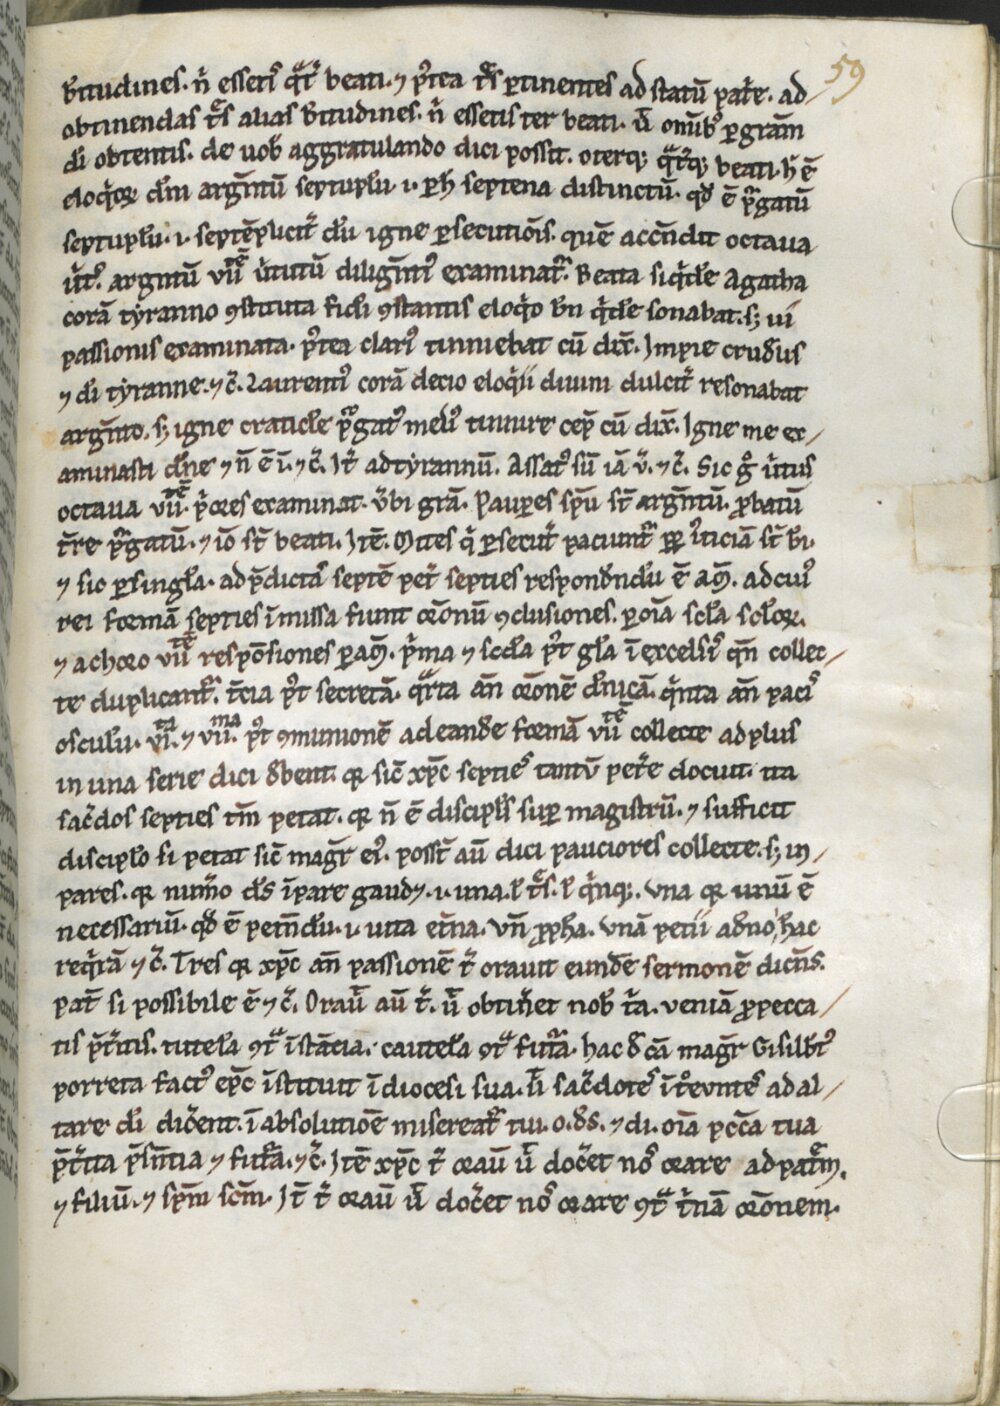 59
b̄titudines. n̄ essetis qͣt̄ beati. ⁊ p̄terea tͤs ꝑtinentes ad statū patr̄e. ad/
obtinendas tͤs alias b̄titudines. n̄ essetis ter beati. ū omībꝫ ꝑ grām
dī obtentis. de uob̄ aggratulando dici possit. o terqꝫ qͣt̄qꝫ beati. h̄ ē
eloqͥoꝝ dn̄i argn̄tū septuplū .i. ꝑ h̄ septena distinctū. qd̄ ē p̄gatū
septuplū .i. septēplicit̄ dū igne ꝑsecutiōis. quē accn̄dit octaua
ūtꝰ. argn̄tū vii ūtutū dilign̄tiꝰ examinat᷑. Beata siqͥdē Agatha
corā tyranno ꝯstituta fidī ꝯstantis eloqͥo bn̄ qͥdē sonabat. sꝫ ui
passionis examinata. p̄terea clariꝰ tinniebat cū dix̄. Impie crudelis
⁊ di tyranne. ⁊ c̄. Laurentiꝰ corā decio eloqͥi diuini dulcit̄ resonabat
argn̄to. sꝫ igne craticl̄e p̄gatꝰ meliꝰ tinnire cep̄ cū dix̄. Igne me ex/
aminasti dn̄e ⁊ n̄ ē ī. ⁊ c̄. It̄ ad tyrannū. Assatꝰ sū iā ū. ⁊ c̄. Sic gͦ ūtus
octaua vii. p̄ores examinat. Vbi grā. Pauꝑes sp̄u st̄ argn̄tū. ꝓbatū
t̄re p̄gatū. ⁊ iō st̄ beati. Itē. Mites qͥ ꝑsecut̄ paciunt᷑ ꝓpt̄ iusticiā st̄ b̄i.
⁊ sic ꝑ singl̄a. ad p̄dictā septē pet̄ septies respondendū ē am̄. ad cuiꝰ
rei formā septies ī missa fiunt orōnū ꝯclusiones. ꝑ oīa scl̄a scl̄oꝝ.
⁊ a choro vii respōsiones ꝑ am̄. p̄ma ⁊ scd̄a p̄t gl̄a ī excelsis qn̄ collec/
te duplicant᷑. t̄cia p̄t secretā. qͣrta an̄ orōnē dn̄icā. qͥnta an̄ pacis
osculū. vi. ⁊ vii. p̄t ꝯmunionē ad eande formā vii collecte ad plus
in una serie dici debent. qꝛ sic̄ xp̄c septies tantū pet̄e docuit. ita
sac̄dos septies tm̄ petat. qꝛ n̄ ē discipl̄s suꝑ magistrū. ⁊ sufficit
discipl̄o si petat sic̄ magr̄ eiꝰ. posst̄ aū dici pauciores collecte. sꝫ in/
pares. qꝛ num̄o ds̄ īpare gaudꝫ .i. una. l̄ tͤs. l̄ qͥnqꝫ. Vna qꝛ unū ē
necessariū. qd̄ ē petendū .i. uita et̄na. Vn̄ ꝓph̄a. Vnā petii a dn̄o, hac
reqͥrā ⁊ c̄. Tres qꝛ xp̄c an̄ passionē t̄ orauit eundē sermonē dicēs.
Pat̄ si possibile ē ⁊ c̄. Orau̅ aū t̄. ū obtinet nob̄ t̄a. ueniā ꝓ pecca/
tis p̄t̄itis. tutel̄a ꝯͣt̄ īstācia. cautel̄a ꝯͣt̄ futura. hac d̄ cā magr̄ Gisilb̄tꝰ
porreta factꝰ ep̄c īstituit ī diocesi sua. ū sac̄dotes īt̄eūtes ad al/
tare dī dic̄ent. ī absolutiōe misereat᷑ tui. o. ds̄. ⁊ di. oīa pcc̄a tua
p̄t̄ita p̄sn̄tia ⁊ fut̄a. ⁊ c̄. Itē xp̄c t̄ orau̅ ū doc̄et nos orare ad pat̄m.
⁊ filiū. ⁊ sp̄m sc̄m. It̄ t̄ orau̅ ū doc̄et nos orare ꝯͣt̄ t̄nā orōnem.